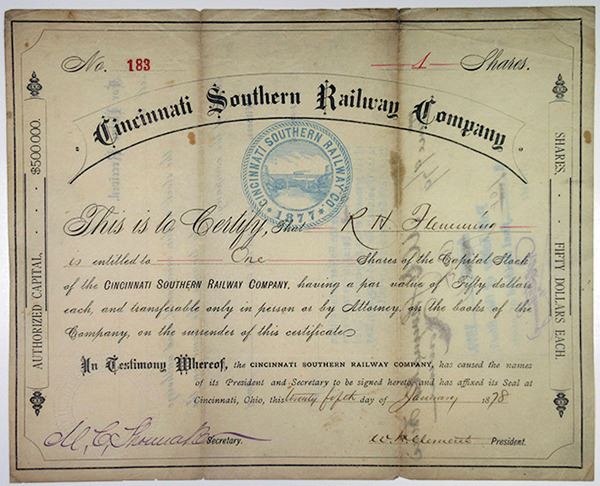 No. 183 1 Shares.
"Cincinnati Southern Railway Company"
CINCINNATI SOUTHERN RAILWAY CO.
1877
This is to Certify, That R H Flemming
is entitled to One Shares of the Capital Stock
of the CINCINNATI SOUTHERN RAILWAY COMPANY, having a par value of Fifty dollars
each, and transferable only in person or by Attorney, on the books of the
Company, on the surrender of this certificate
In Testimony Whereof, the CINCINNATI SOUTHERN RAILWAY COMPANY, has caused the names
of its President and Secretary to be signed hereto, and has affixed its Seal at
Cincinnati, Ohio, this twenty fifth day of January 1878
M. C. Shoemaker Secretary. W H Clement President.
AUTHORIZED CAPITAL, $500000.
SHARES, FIFTY DOLLARS EACH.